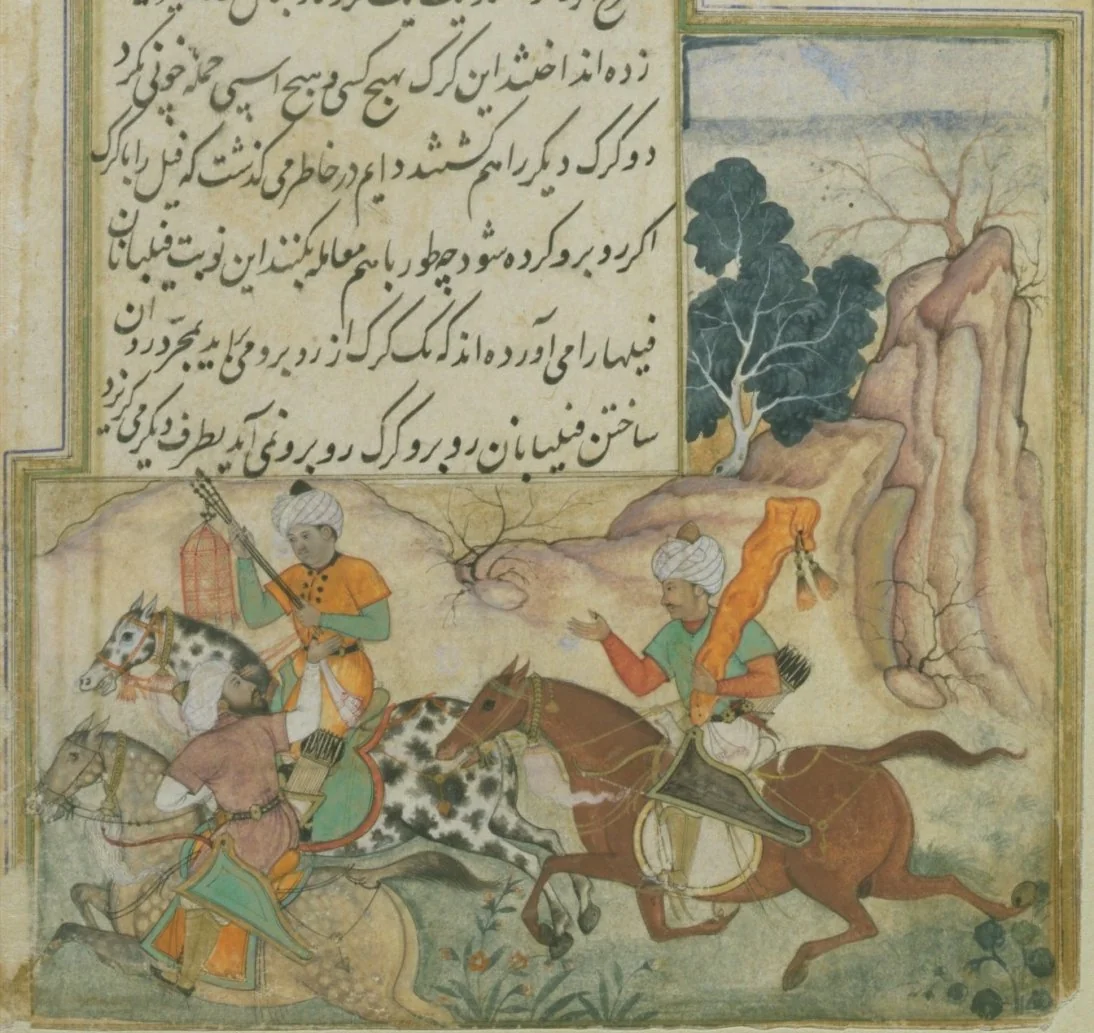 زده انداختند این کرک بهیچ کسی و هیچ اسپی حمله خونی نکرد
دو کرک دیکر را هم کشتند دایم در خاطر می کذشت که فیل را با کرک
اکر رو برو کرده شود چه طور با هم معامله بکنند این نوبت فیلبانان
فیلها را می آورده اند که یک کرک از رو برو می آید بمجرد روان
ساختن فیلبانان رو برو کرک رو برو نمی آید بطرف دیکر می کریزد